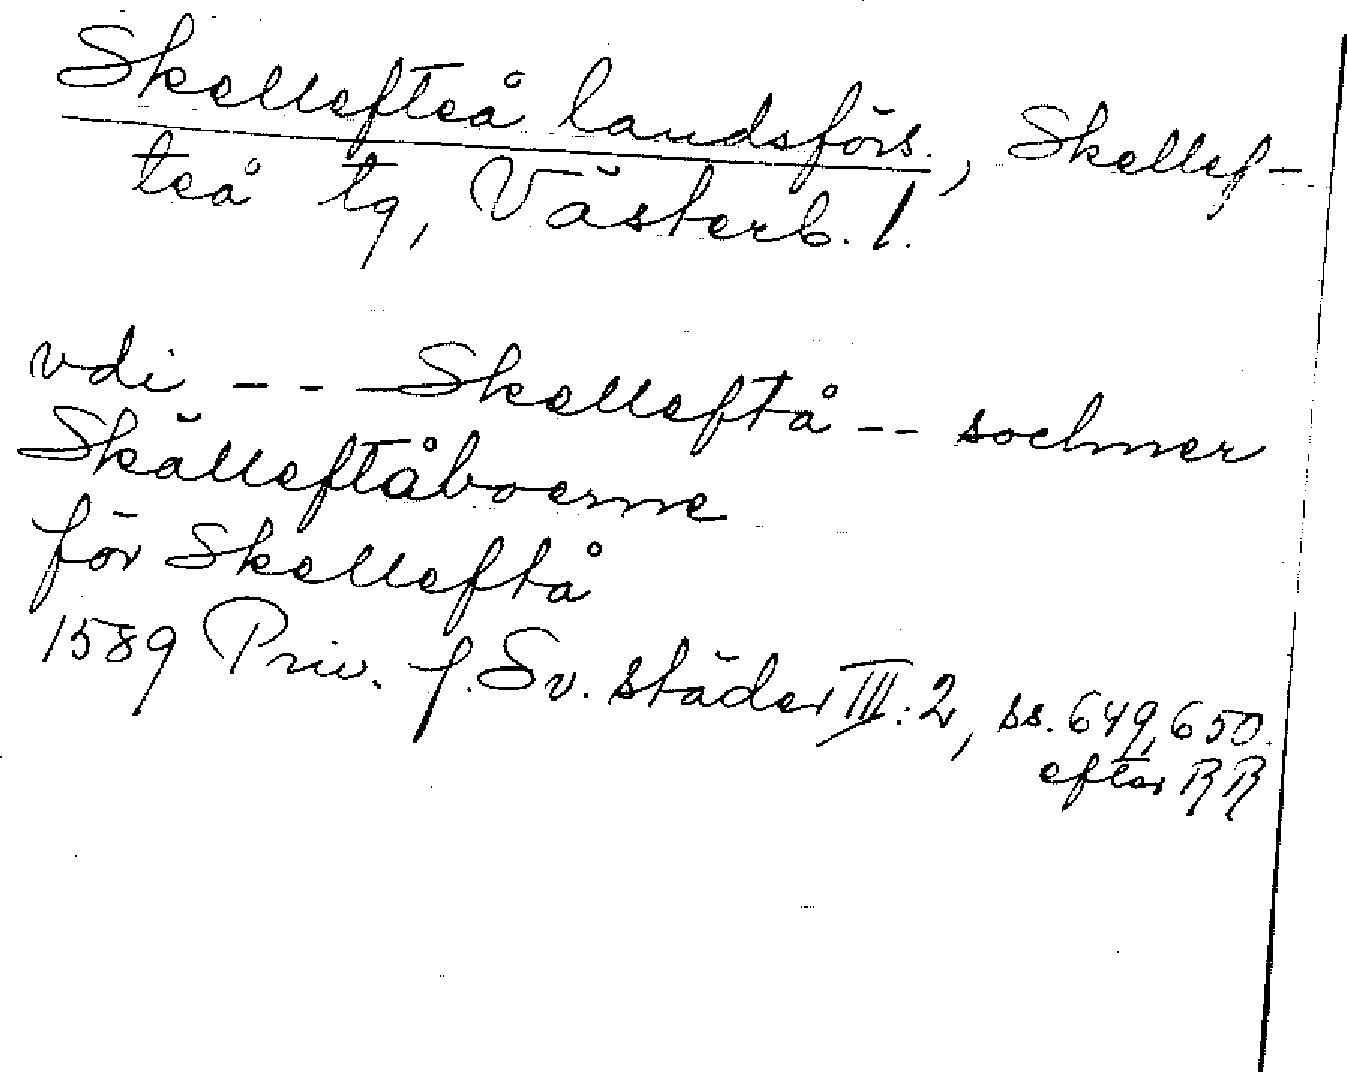 Skellefteå landsförs., Skellef-
teå tg, Västerb. l.
vdi --- Skelleftå -- sochner
Skälleftåboerne
för Skelleftå
1589 Priv. f. Sv. städer III:2, ss. 649, 650
efter RR